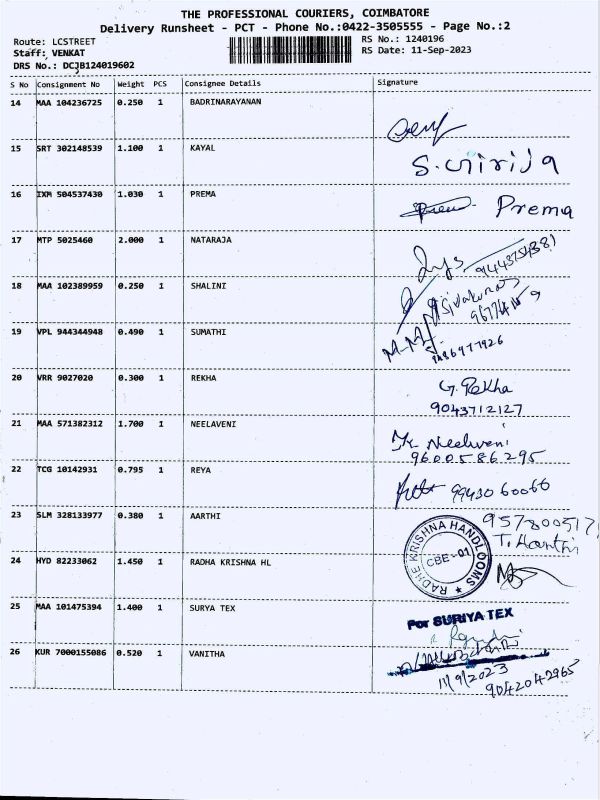 THE PROFESSIONAL COURIERS, COIMBATORE
Delivery Runsheet - PCT - Phone No.:0422-3505555 - Page No.:2
Route: LCSTREET
Staff: VENKAT
DRS No.: DCJB124019602
RS No.: 1240196
RS Date: 11-Sep-2023
S No Consignment No Weight PCS Consignee Details Signature
14 MAA 104236725 0.250 1 BADRINARAYANAN
15 SRT 302148539 1.100 1 KAYAL S. Girija
16 IXM 504537430 1.030 1 PREMA Prema
17 MTP 5025460 2.000 1 NATARAJA
18 MAA 102389959 0.250 1 SHALINI
19 VPL 944344948 0.490 1 SUMATHI
20 VRR 9027020 0.300 1 REKHA G. Rekha
9043712127
21 MAA 571382312 1.700 1 NEELAVENI Neelveni
9600586295
22 TCG 10142931 0.795 1 REYA 99430 60066
23 SLM 328133977 0.380 1 AARTHI 957800517
24 HYD 82233062 1.450 1 RADHA KRISHNA HL RADHE KRISHNA HANDLOOMS
CBE-01
25 MAA 101475394 1.400 1 SURYA TEX For SURIYA TEX
26 KUR 7000155086 0.520 1 VANITHA
11/9/2023
9042042965